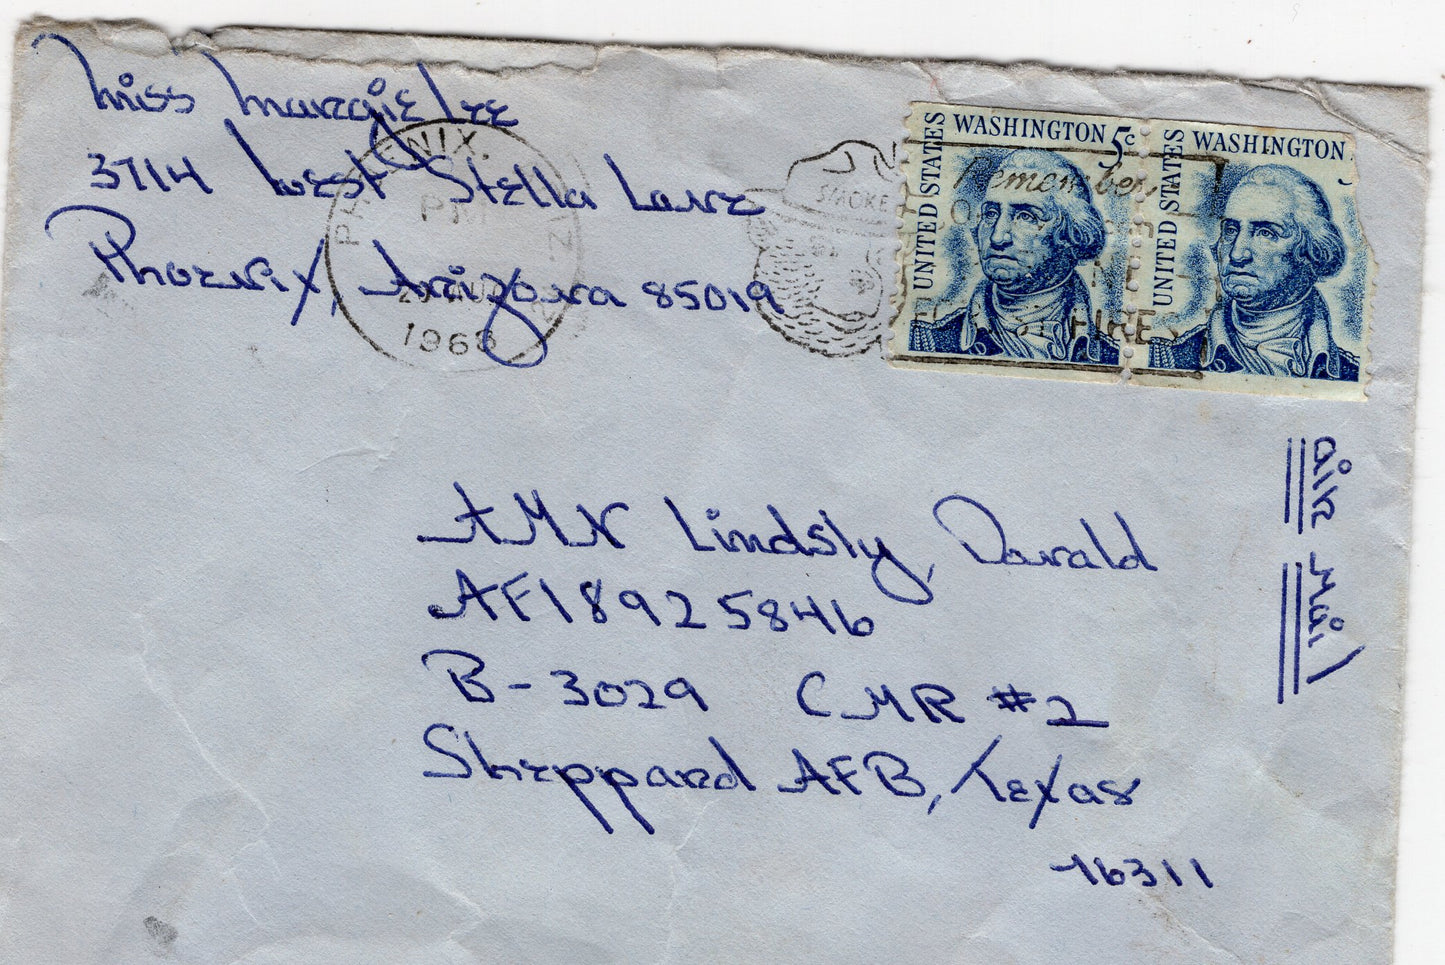 Miss Margie Lee
3714 West Stella Lane
Phoenix, Arizona 85019
PHOENIX,
PM
1968
SMOKEY
Remember,
FIRES
UNITED STATES
WASHINGTON 5c
UNITED STATES
WASHINGTON
Air Mail
AMN Lindsly, Donald
AF18925846
B-3029 CMR #2
Sheppard AFB, Texas
76311